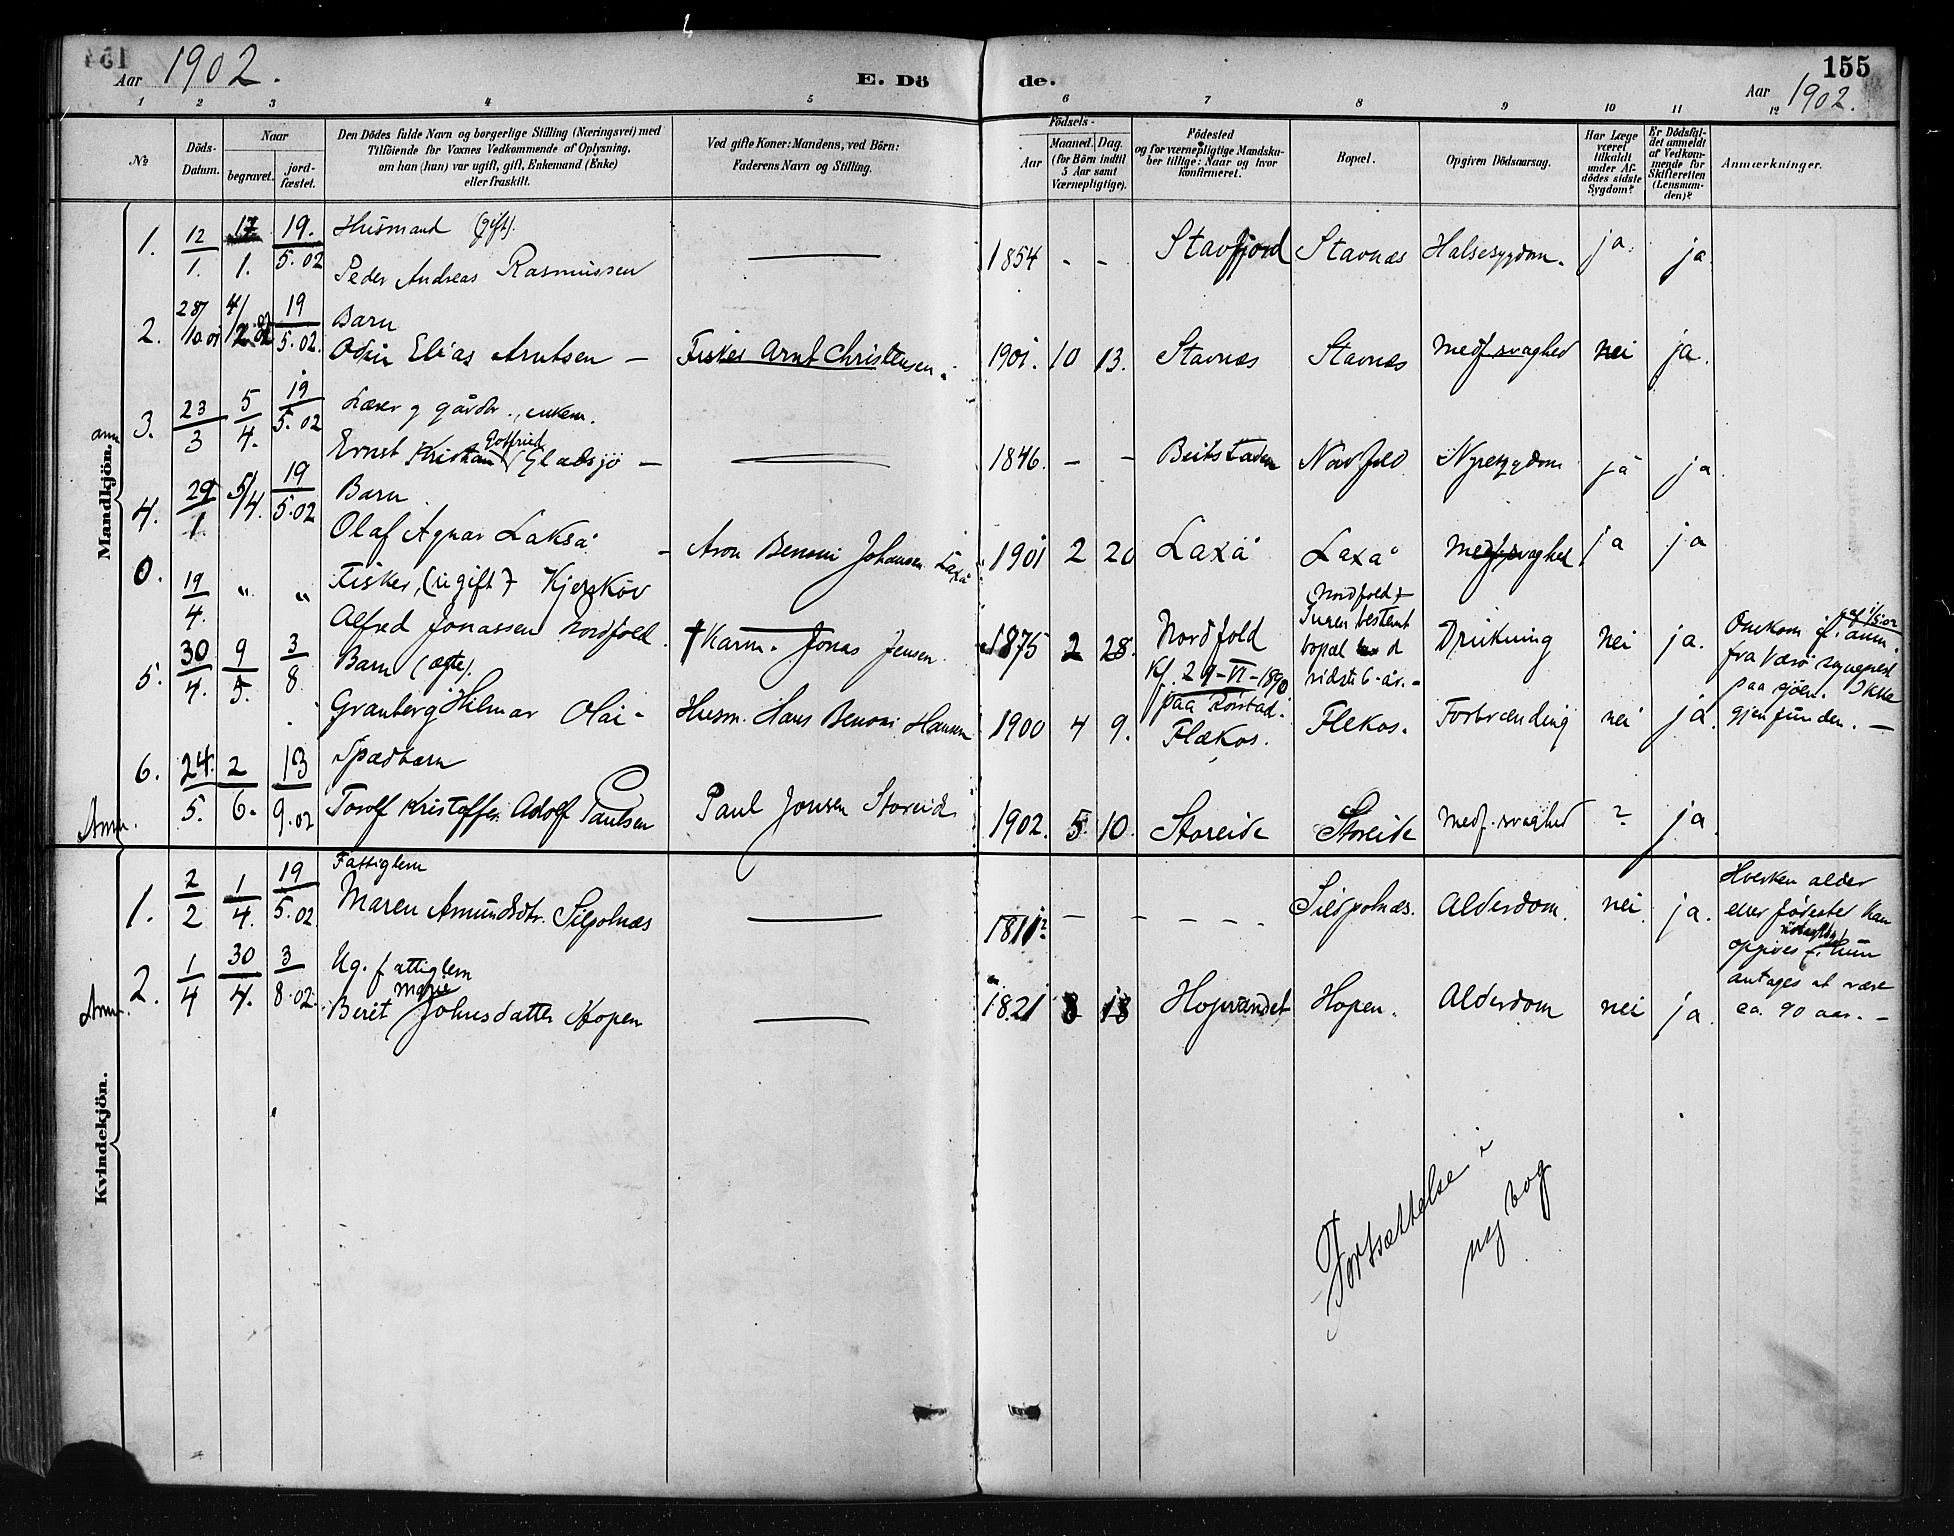 Aar 1902.
E. Dö de.
155
Aar 1902.
1 2 3 4 5 6 7 8 9 10 11 12
No
Döds-
Datum.
Naar
begravet.
jord-
fæstet.
Den Dödes fulde Navn og borgerlige Stilling (Næringsvei) med
Tilföiende for Voxnes Vedkommende af Oplysning,
om han (hun) var ugift, gift, Enkemand (Enke)
eller fraskilt.
Ved gifte Koner: Mandens, ved Börn:
Faderens Navn og Stilling.
Födsels-
Aar
Maaned. Dag.
(for Börn indtil
5 Aar samt
Værnepligtige).
Födested
og for værnepligtige Mandska-
ber tillige: Naar og hvor
konfirmeret.
Bopæl.
Opgiven Dödsaarsag.
Har Læge
været
tilkaldt
under Af-
dödes sidste
Sygdom?
Er Dödsfal-
det anmeldt
af Vedkom-
mende for
Skifteretten
(Lensman-
den)?
Anmærkninger.
Mandkjön.
1. 12/1. 17/1. 19./5.02 Husmand (gift).
Peder Andreas Rasmussen — 1854 - - Stavfjord Stavnæs Halsesygdom. ja. ja
2. 28/10 01 4/2 02 19/5.02. Barn
Odin Elias Arntsen — Fisker Arnt Christensen. 1901. 10 13. Stavnæs Stavnæs Medf. svaghed nei ja.
anm
3. 23/3 5/4. 19/5.02 Lærer g gårdbr., enkem.
Ernst Kristian Gotfried Gladsjö — 1846. - - Beitstaden Nordfold Nyresygdom ja ja
4. 29/1. 5/4. 19/5.02 Barn
Olaf Agnar Lakså - Aron Benoni Johansen Laxå 1901 2 20 Laxå Laxå Medf. svaghed ja ja
0. 19/4. " " Fisker, (ugift) Kjerskov
Alfred Jonassen Nordfold. † Karm. Jonas Jensen. 1875 2 28. Nordfold
Kf. 29-VI-1890
paa Rörstad.
Nordfold
Ingen bestemt
bopæl d
sidste 6 år. -
Drukning nei ja.
Omkom
fra Værö
paa sjöen. Ikke
gjenfunden. —
5. 30/4. 9/5. 3/8 Barn (ægte).
Granberg Hilmar Olai - Husm. Hans Benoni Hansen 1900 4 9. Flækos. Flekos. Forbrænding nei ja
6. 24./5. 2/6. 13/9.02 Spædbarn
Torolf Kristoffer Adolf Paulsen Paul Jonsen Storeide 1902. 5. 10. Storeide Storeide Medf. svaghed ? ja
Anm.
Kvindekjön.
1. 2/2 1/4. 19/5.02. Fattiglem
Maren Amundsdtr. Silpolnæs — 1811? - - - - - Sildpolnæs. Alderdom. nei ja.
Hverken alder
eller födested kan
opgives nöiagtig. Hun
antages at være
ca. 90 aar. -
Anm.
2. 1/4 30/4. 3/8.02. Ug. fattiglem
Beret Marie Johnsdatter Hopen — 1821 8 18 Hopvandet Hopen. Alderdom nei ja.
Fortsættelse i
ny bog